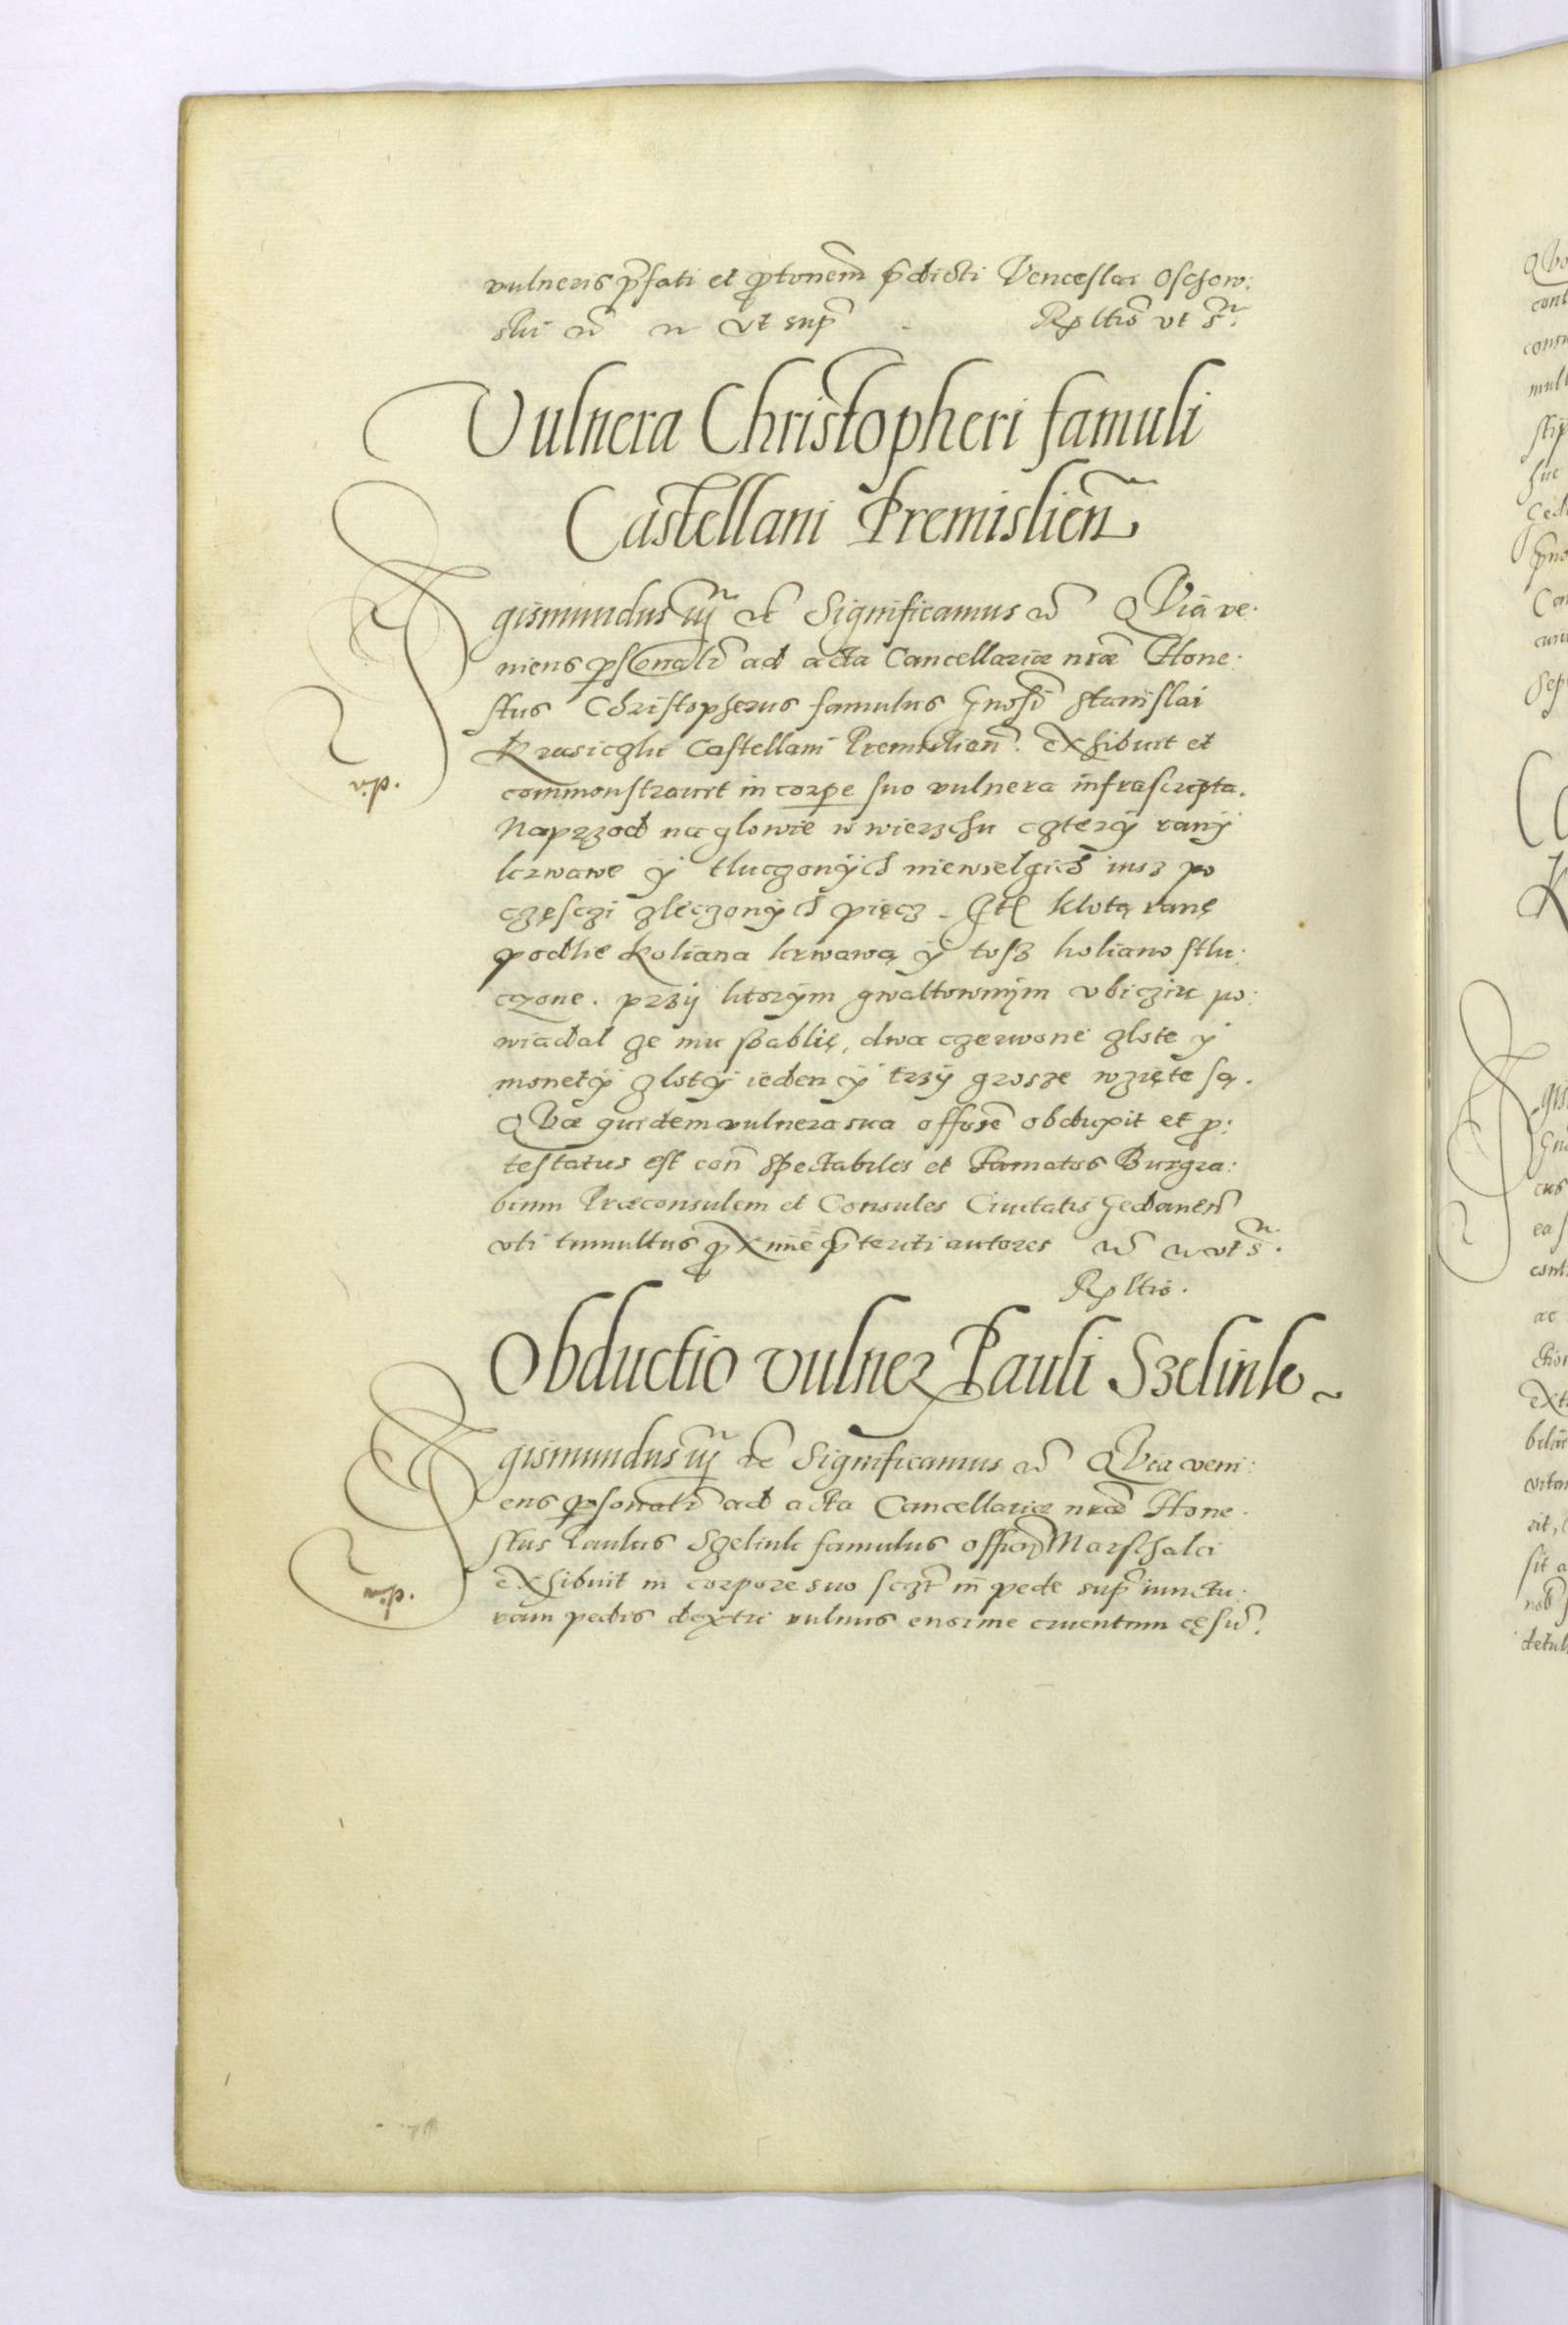 vulneris p̃fati et ꝓtonem p̃dicti Venceslai Oschow:
ski ut sup̃ Rƥltio ut s.
Vulnera Christopheri famuli
Castellani Premislien̄
Sigismundus iij etc̃ Significamus QVia ve:
niens ꝑsonalr̃ ad acta Cancellariæ nr̃æ Hone:
stus Christopherus famulus Gnosi Stanislai
Krasiczki Castellani Premislien̄. exhibuit et
commonstravit in corpe suo vulnera infrascripta.
Naprzod na glowie w wierzchu cztery rany
krwawe y tluczonych niewielgich iusz po
częsczi zleczonych pięcz. Itē klotą ranę
podlie koliana krwawą y tosz koliano stlu:
czone. przy ktorym gwaltownym ubicziu po:
wiadal ze mu szablię, dwa czerwone zlote y
monety zloty ieden y trzy grosze wzięte są.
QVæ quidem vulnera sua offose obduxit et ꝓ:
testatus est con̄ Spectabiles et Famatos Burgra:
bium Præconsulem et Consules Civitatis Gedanen̄
uti tumultus ꝓxime p̃teriti autores ut s.
Rƥltio.
Obductio vulner Pauli Szelink
Sigismundus iij etc̃ Significamus QVia veni:
ens ꝑsonalr̃ ad acta Cancellariæ nr̃æ Hone:
stus Paulus Szelink famulus Marschalci
exhibuit in corpore suo sczt̃ in pede sup̃ iunctu:
ram pedis dextri vulnus enorme cruentum cęsū.